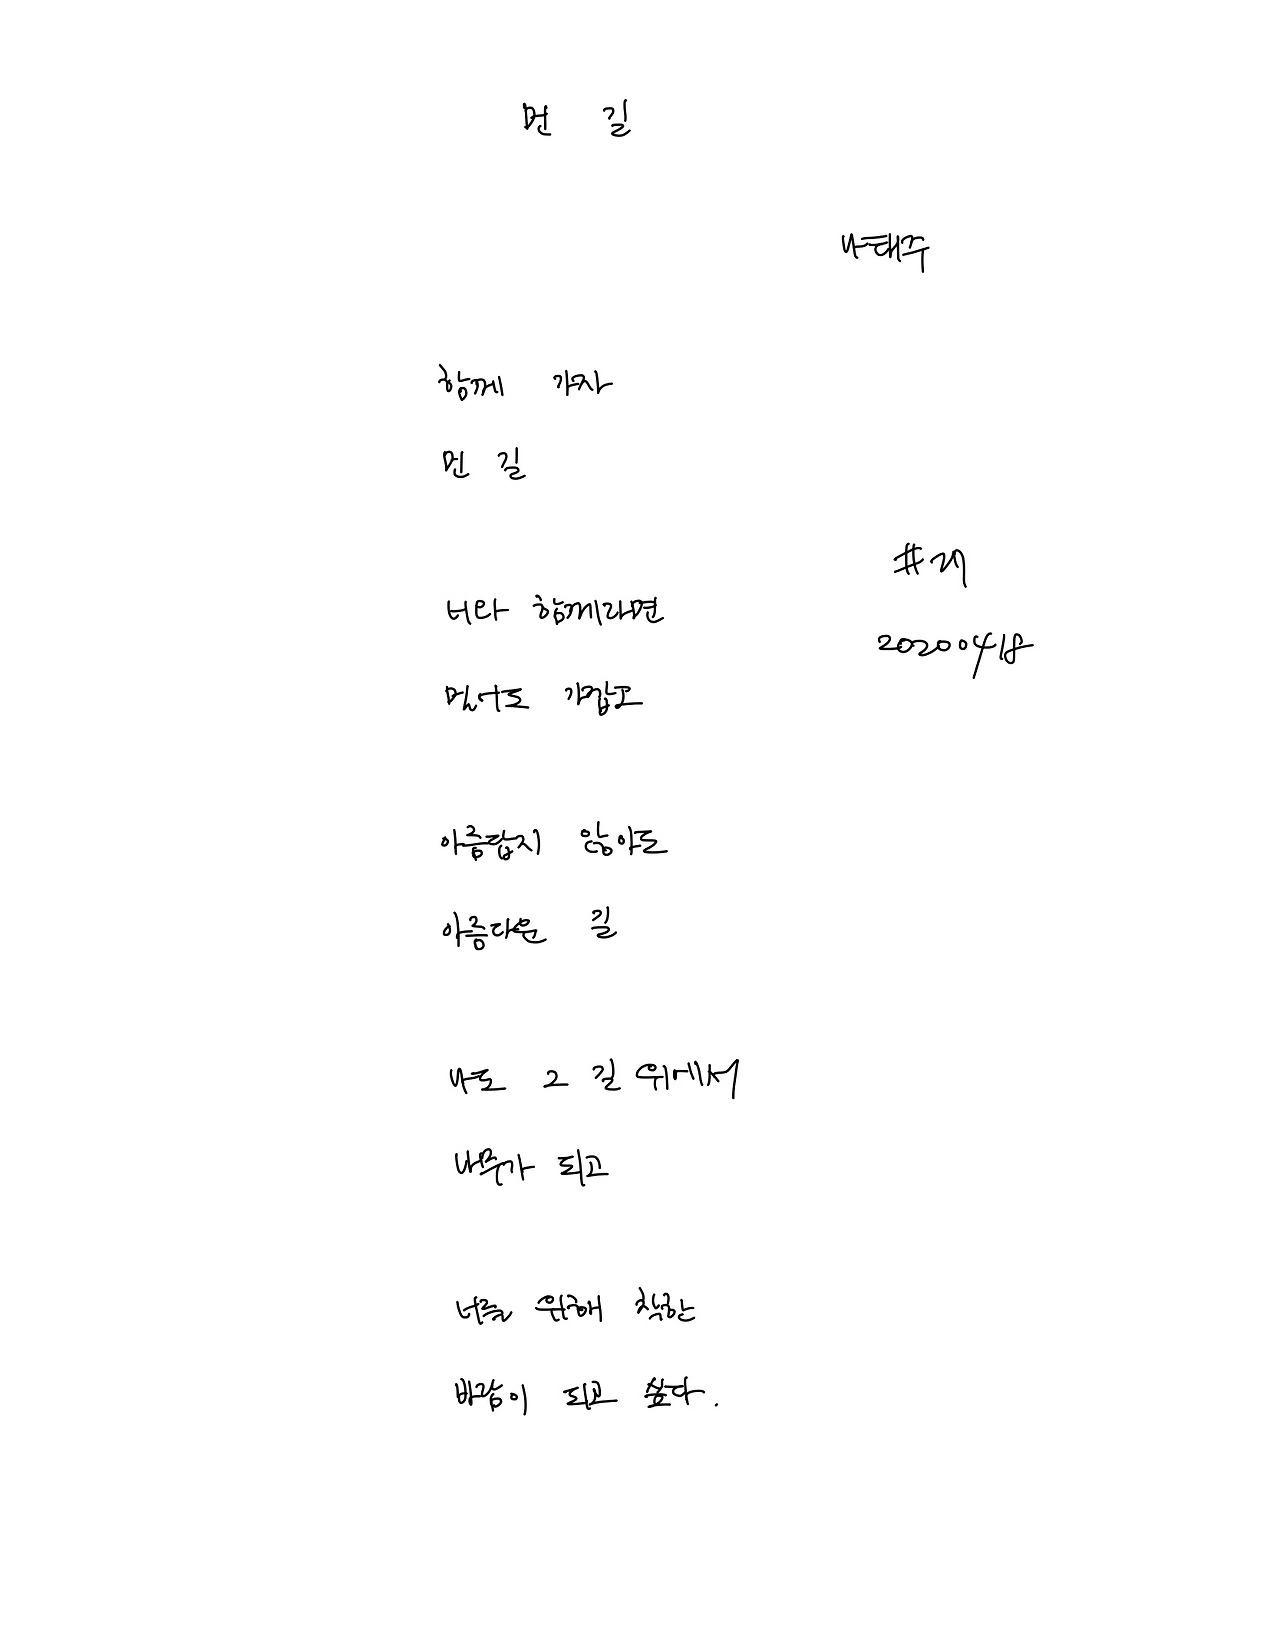 먼 길
나태주
함께 가자
먼 길
너와 함께라면
멀어도 가깝고
#27
20200418
아름답지 않아도
아름다운 길
나도 그 길 위에서
나무가 되고
너를 위해 착한
바람이 되고 싶다.